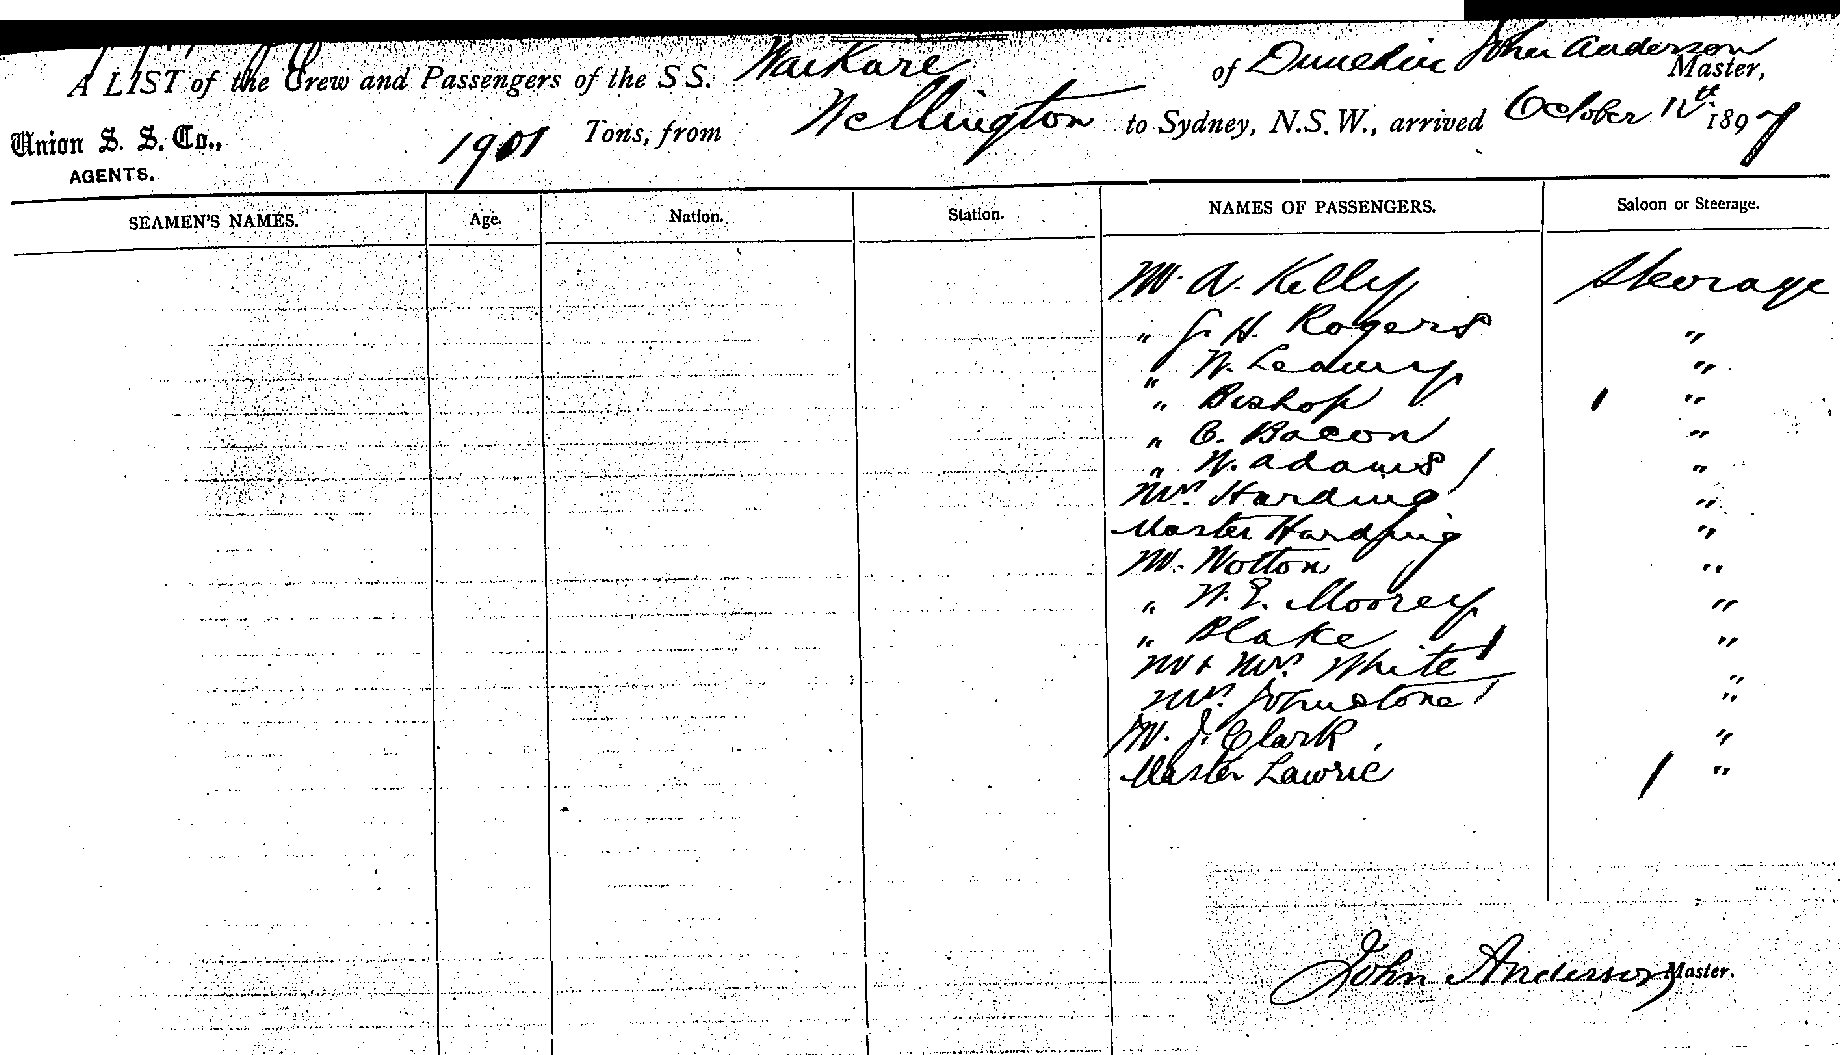 A LIST of the Crew and Passengers of the S S. Waikare of Dunedin John Anderson Master,
Union S. S. Co.,
AGENTS.
1901 Tons, from Wellington to Sydney, N.S.W., arrived October 1897
SEAMEN'S NAMES. Age. Nation. Station. NAMES OF PASSENGERS. Saloon or Steerage.
Mr. A. Kelly Steerage
" J. H. Rogers "
" W. "
" Bishop "
" C. Bacon "
" W. Adams "
Mrs. Harding "
Master Harding "
Mr. Wotton "
" W. E. Moorey "
" Blake "
Mr & Mrs. White "
Mrs. Johnstone "
Mr. J. Clark "
Master Lawrie "
John Anderson Master.